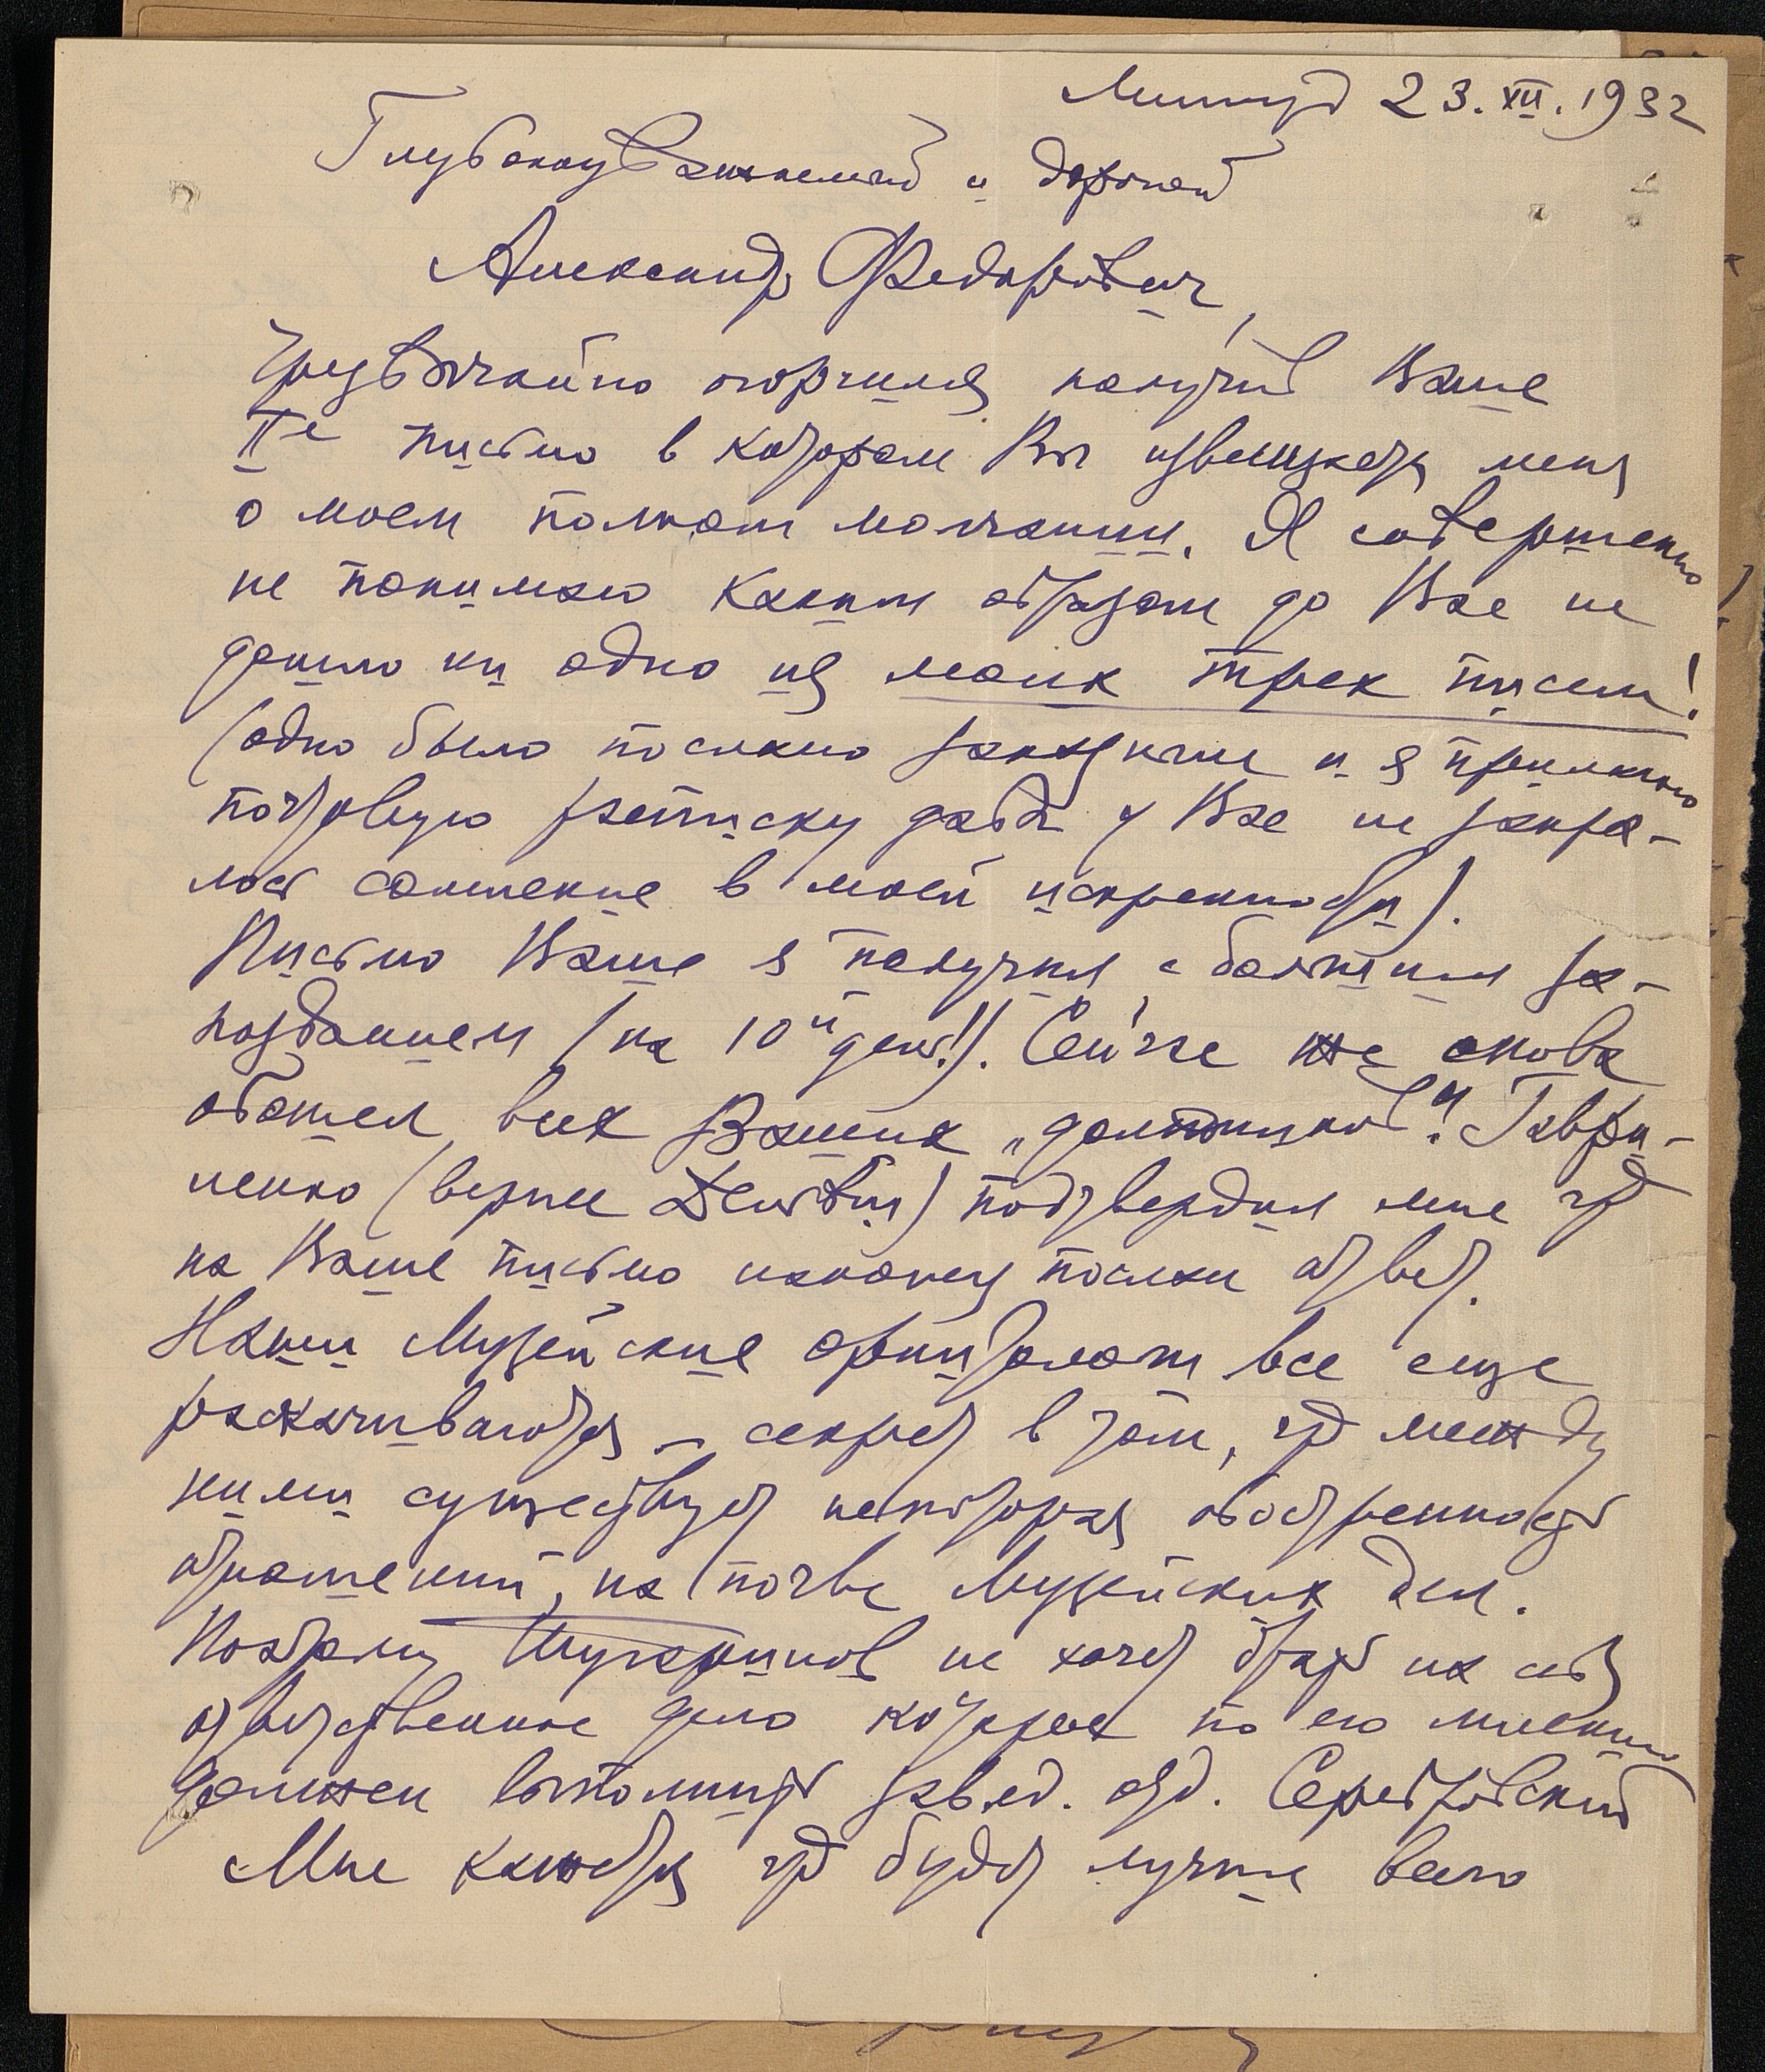 23.XII.1932
Глубокоуважаемый и дорогой
Александр Федорович,
Чрезвычайно огорчился получив Ваше
IIе письмо в котором Вы извещаете меня
о моем полном молчании. Я совершенно
не понимаю каким образом до Вас не
дошло ни одно из моих трех писем!
(одно было послано заказным и я прилагаю
почтовую расписку дабы у Вас не закра-
лось сомнение в моей искренности).
Письмо Ваше я получил с большим за-
позданием (на 10й день!). Сейчас же снова
обошел всех Ваших „должников“. Гаври-
ленко (вернее ) подтвердил мне что
на Ваше письмо наконец послан ответ.
Наши Музейские все еще
раскачиваются – секрет в том, что между
ними существует некоторая обостренность
отношений, на почве Музейских дел.
Поэтому не хочет брать на себя
ответственное дело которое по его мнению
должен выполнить завед. отд. Серебровский
Мне кажется что будет лучше всего